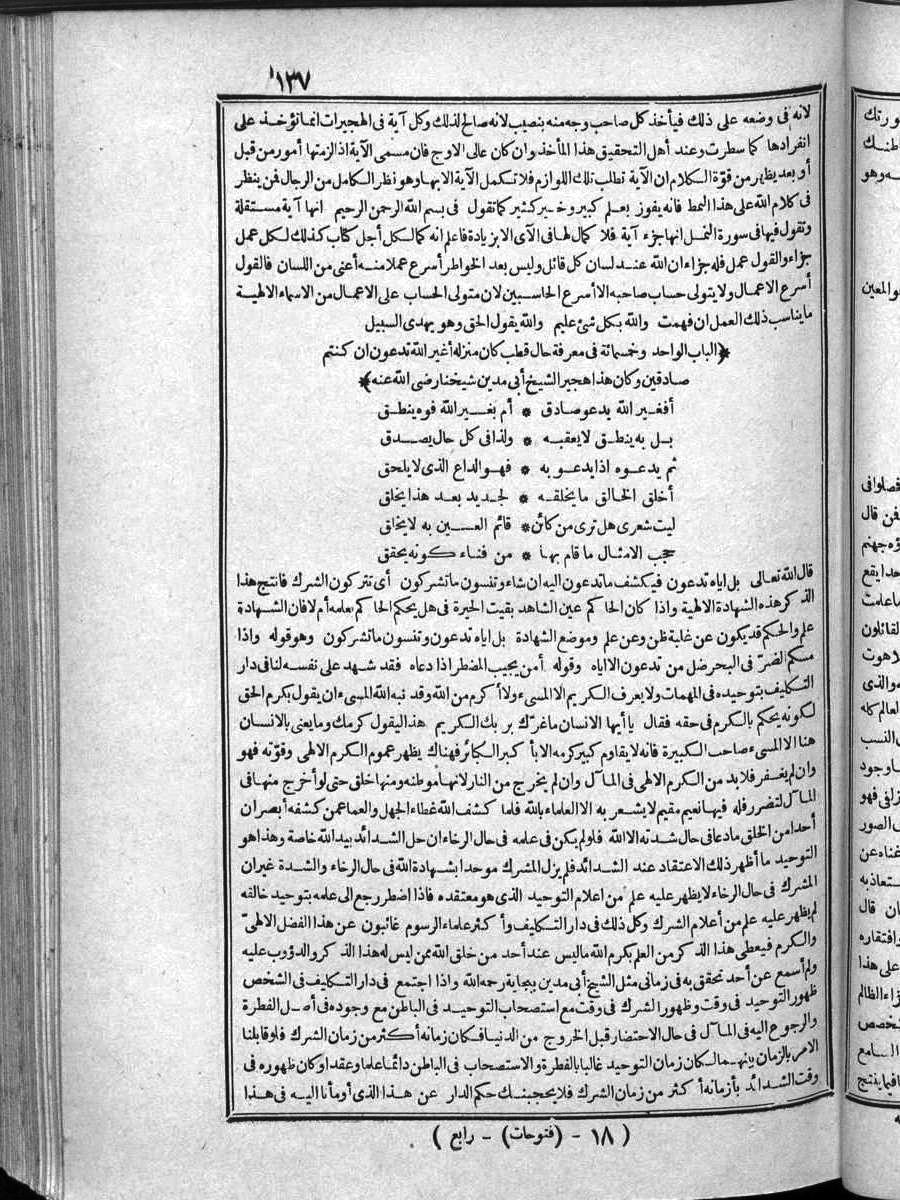 ١٣٧
لانه فى وضعه على ذلك فيأخذ كل صاحب وجه منه بنصيب لانه صالح لذلك وكل آية فى الهجيرات انما نؤخذ على
انفرادها كما سطرت وعند أهل التحقيق هذا المأخذ وان كان عالى الاوج فان مسمى الآية اذا لزمتها أمور من قبل
أو بعد يظهر من قوّة الكلام ان الآية تطلب تلك اللوازم فلا تكمل الآية الا بها وهو نظر الكامل من الرجال فمن ينظر
فى كلام الله على هذا النمط فانه يفوز بعلم كبير وخير كثير كما تقول فى بسم الله الرحمن الرحيم انها آية مستقلة
وتقول فيها فى سورة النمل انها جزء آية فلا كمال لها فى الآى الا بزيادة فاعلم انه كما لكل أجل كتاب كذلك لكل عمل
جزاء والقول عمل فله جزاء ان الله عند لسان كل قائل وليس بعد الخواطر أسرع عملا منه أعنى من اللسان فالقول
أسرع الاعمال ولا يتولى حساب صاحبه الا أسرع الحاسبين لان متولى الحساب على الاعمال من الاسماء الالهية
ما يناسب ذلك العمل ان فهمت والله بكل شئ عليم والله يقول الحق وهو يهدى السبيل
﴿الباب الواحد وخمسمائة فى معرفة حال قطب كان منزله أغير الله تدعون ان كنتم
صادقين وكان هذا هجير الشيخ أبى مدين شيخنا رضى الله عنه﴾
أفغير الله يدعو صادق * أم بغير الله فوه ينطق
بل به ينطق لا يعقبه * ولذا فى كل حال يصدق
ثم يدعوه اذا يدعو به * فهو الداع الذى لا يلحق
أخلق الخالق ما يخلقه * لجديد بعد هذا يخلق
ليت شعرى هل ترى من كائن * قائم العين به لا يخلق
حجب الامثال ما قام بها * من فناء كونه يحقق
قال الله تعالى بل اياه تدعون فيكشف ما تدعون اليه ان شاء وتنسون ما تشركون أى تتركون الشرك فانتج هذا
الذكر هذه الشهادة الالهية واذا كان الحاكم عين الشاهد بقيت الحيرة فى هل يحكم الحاكم بعلمه أم لا فان الشهادة
علم والحكم قد يكون عن غلبة ظن وعن علم وموضع الشهادة بل اياه تدعون وتنسون ما تشركون وهو قوله واذا
مسكم الضرّ فى البحر ضل من تدعون الا اياه وقوله أمن يجيب المضطر اذا دعاه فقد شهد على نفسه لنا فى دار
التكليف بتوحيده فى المهمات ولا يعرف الكريم الا المسىء ولا أكرم من الله وقد نبه الله المسىء ان يقول بكرم الحق
لكونه يحكم بالكرم فى حقه فقال يا أيها الانسان ما غرّك بربك الكريم هذا ليقول كرمك وما يعنى بالانسان
هنا الا المسىء صاحب الكبيرة فانه لا يقاوم كبير كرمه الا بأكبر الكبائر فهناك يظهر عموم الكرم الالهى وقوّته فهو
وان لم يغفر فلا بد من الكرم الالهى فى المآل وان لم يخرج من النار لانها موطنه ومنها خلق حتى لو أخرج منها فى
المآل لتضرر فله فيها نعيم مقيم لا يشعر به الا العلماء بالله فلما كشف الله غطاء الجهل والعما عمن كشفه أبصر ان
أحدا من الخلق ما دعا فى حال شدته الا الله فلو لم يكن فى علمه فى حال الرخاء ان حل الشدائد بيد الله خاصة وهذا هو
التوحيد ما أظهر ذلك الاعتقاد عند الشدائد فلم يزل المشرك موحدا بشهادة الله فى حال الرخاء والشدة غير ان
المشرك فى حال الرخاء لا يظهر عليه علم من أعلام التوحيد الذى هو معتقده فاذا اضطر رجع الى علمه بتوحيد خالقه
لم يظهر عليه علم من أعلام الشرك وكل ذلك فى دار التكليف وأكثر علماء الرسوم غائبون عن هذا الفضل الالهىّ
والكرم فيعطى هذا الذكر من العلم بكرم الله ما ليس عند أحد من خلق الله ممن ليس له هذا الذكر والدؤوب عليه
ولم أسمع عن أحد تحقق به فى زمانى مثل الشيخ أبى مدين ببجاية رحمه الله واذا اجتمع فى دار التكليف فى الشخص
ظهور التوحيد فى وقت وظهور الشرك فى وقت مع استصحاب التوحيد فى الباطن مع وجوده فى أصل الفطرة
والرجوع اليه فى المآل فى حال الاحتضار قبل الخروج من الدنيا فكان زمانه أكثر من زمان الشرك فلو قابلنا
الامر بالزمان بينهما لكان زمان التوحيد غالبا بالفطرة والاستصحاب فى الباطن دائما علما وعقدا وكان ظهوره فى
وقت الشدائد بأزمانه أكثر من زمان الشرك فلا يحجبنك حكم الدار عن هذا الذى أومأنا اليه فى هذا
( ١٨ - (فتوحات) - رابع )